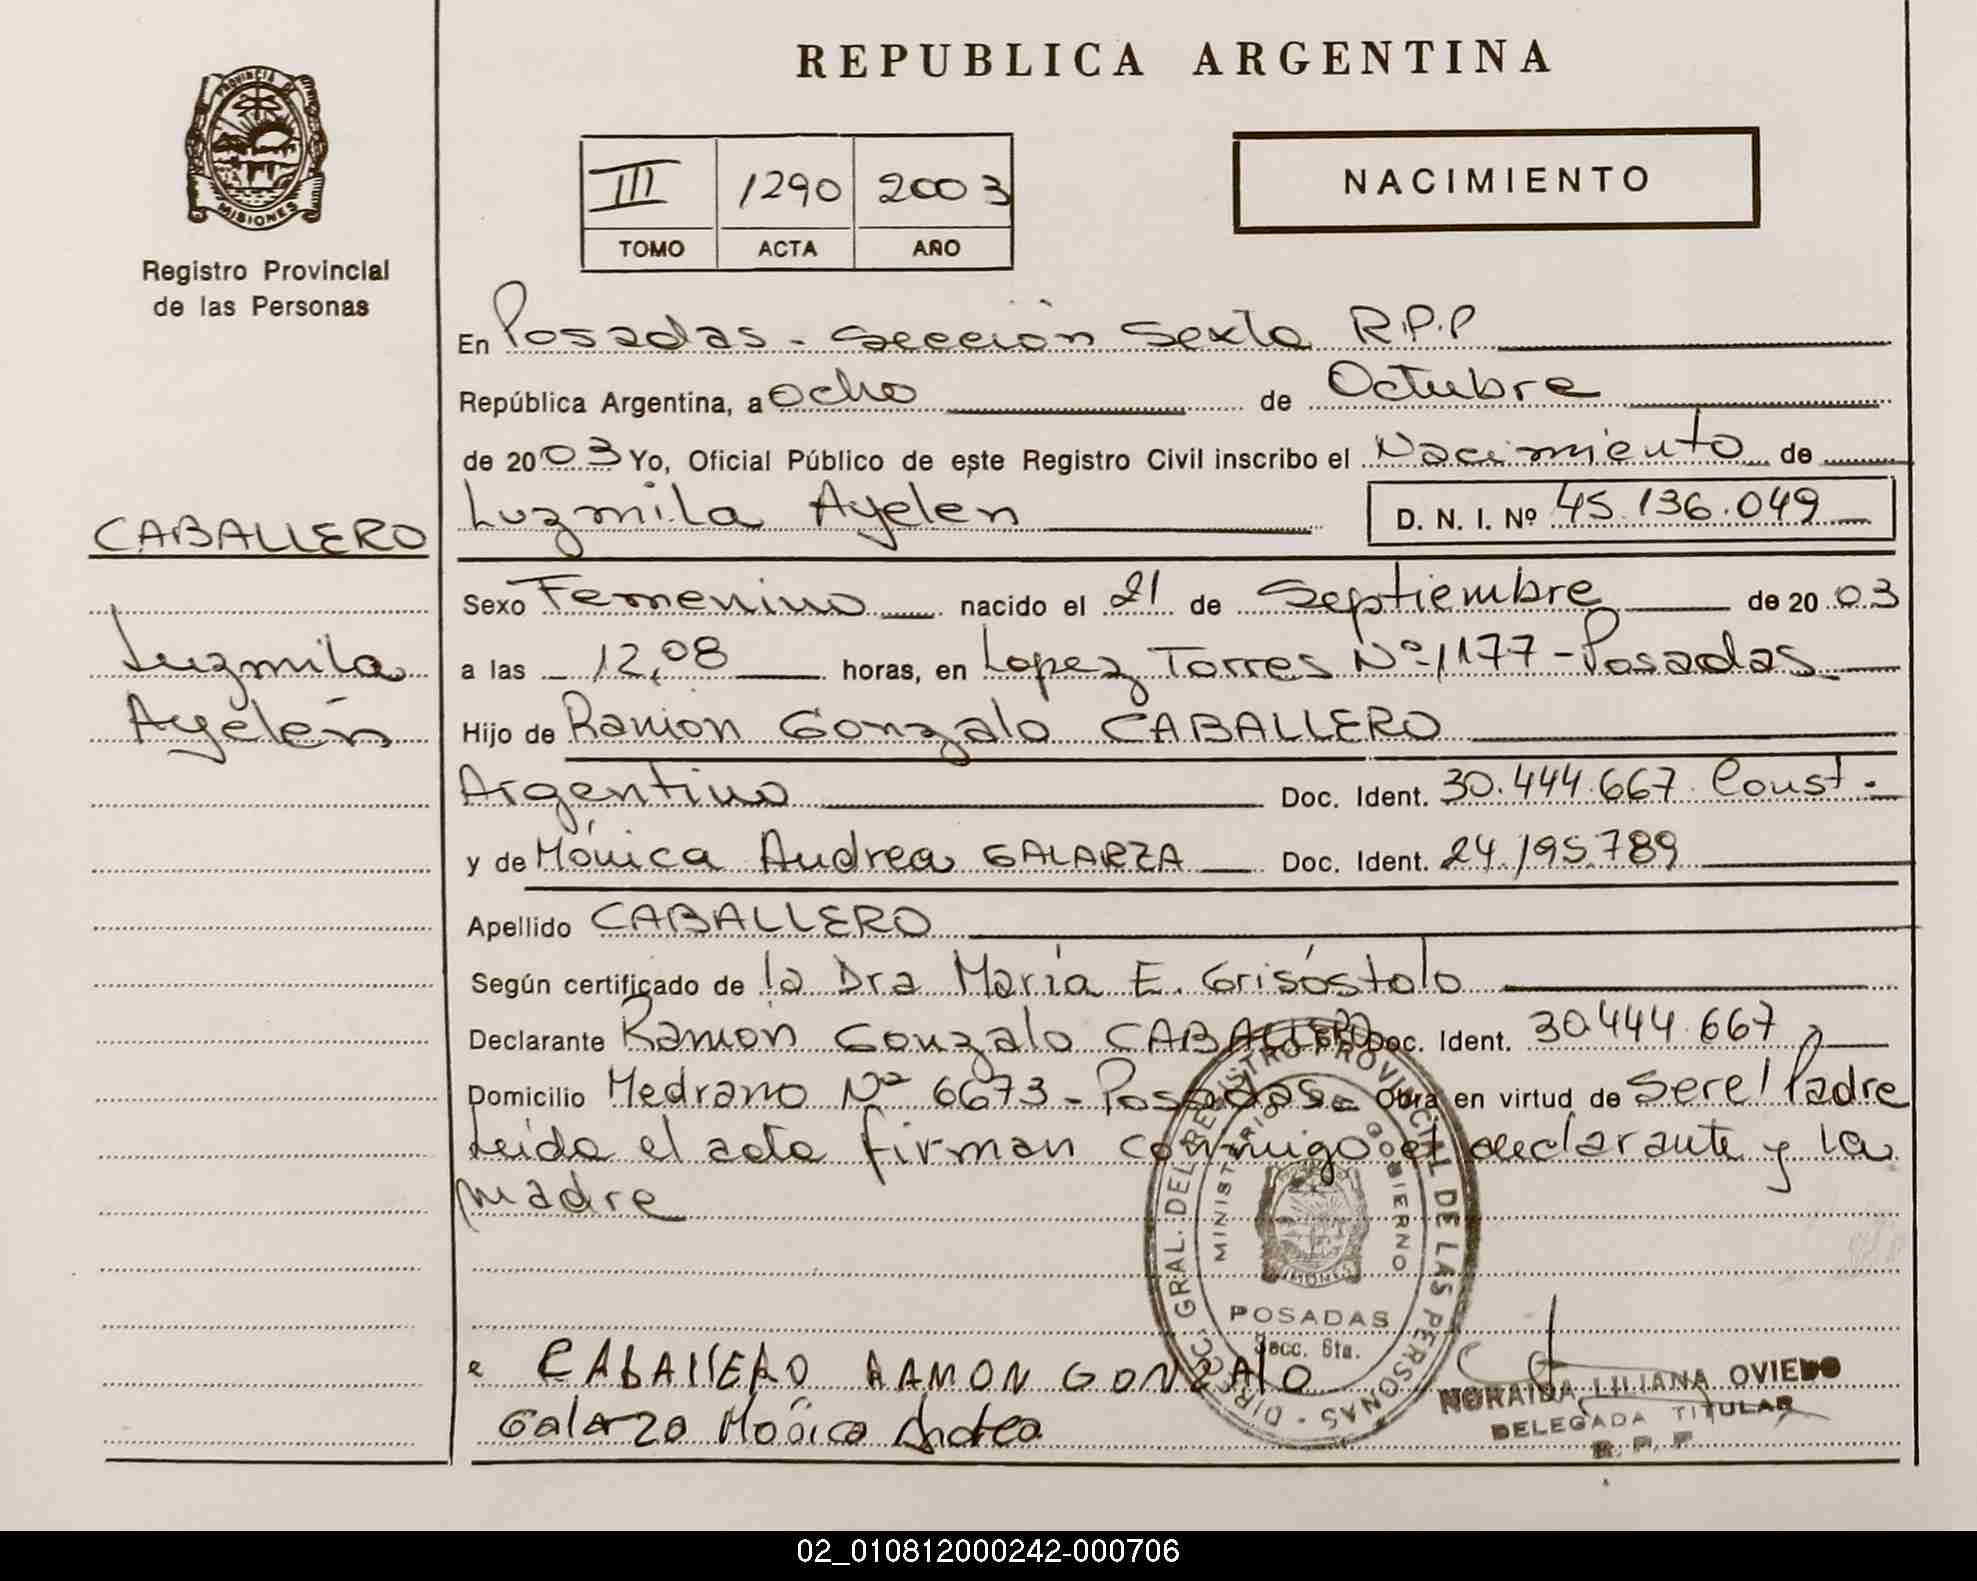 REPUBLICA ARGENTINA
PROVINCIA
MISIONES
Registro Provincial
de las Personas
III 1290 2003
TOMO ACTA AÑO
NACIMIENTO
En Posadas - Sección Sexta R.P.P
República Argentina, a Ocho de Octubre
de 2003 Yo, Oficial Público de este Registro Civil inscribo el Nacimiento de
Luzmila Ayelen D. N. I. Nº 45.136.049
CABALLERO
Luzmila
Ayelén
Sexo Femenino nacido el 21 de Septiembre de 2003
a las 12,08 horas, en Lopez Torres Nº 1177 - Posadas
Hijo de Ramón Gonzalo CABALLERO
Argentino Doc. Ident. 30.444.667 Const.
y de Mónica Andrea GALARZA Doc. Ident. 24.195.789
Apellido CABALLERO
Según certificado de la Dra María E. Grisóstolo
Declarante Ramón Gonzalo CABALLERO Doc. Ident. 30.444.667
Domicilio Medrano Nº 6673 - Posadas Obra en virtud de Ser el Padre
Leida el acta firman conmigo el declarante y la
madre
DIRECC. GRAL. DEL REGISTRO PROVINCIAL DE LAS PERSONAS
MINISTERIO DE GOBIERNO
MISIONES
POSADAS
Secc. 6ta.
CABAllERO RAMON GONZALO
Galarza Mónica Andrea
NORAIDA LILIANA OVIEDO
DELEGADA TITULAR
R. P. P
02_010812000242-000706